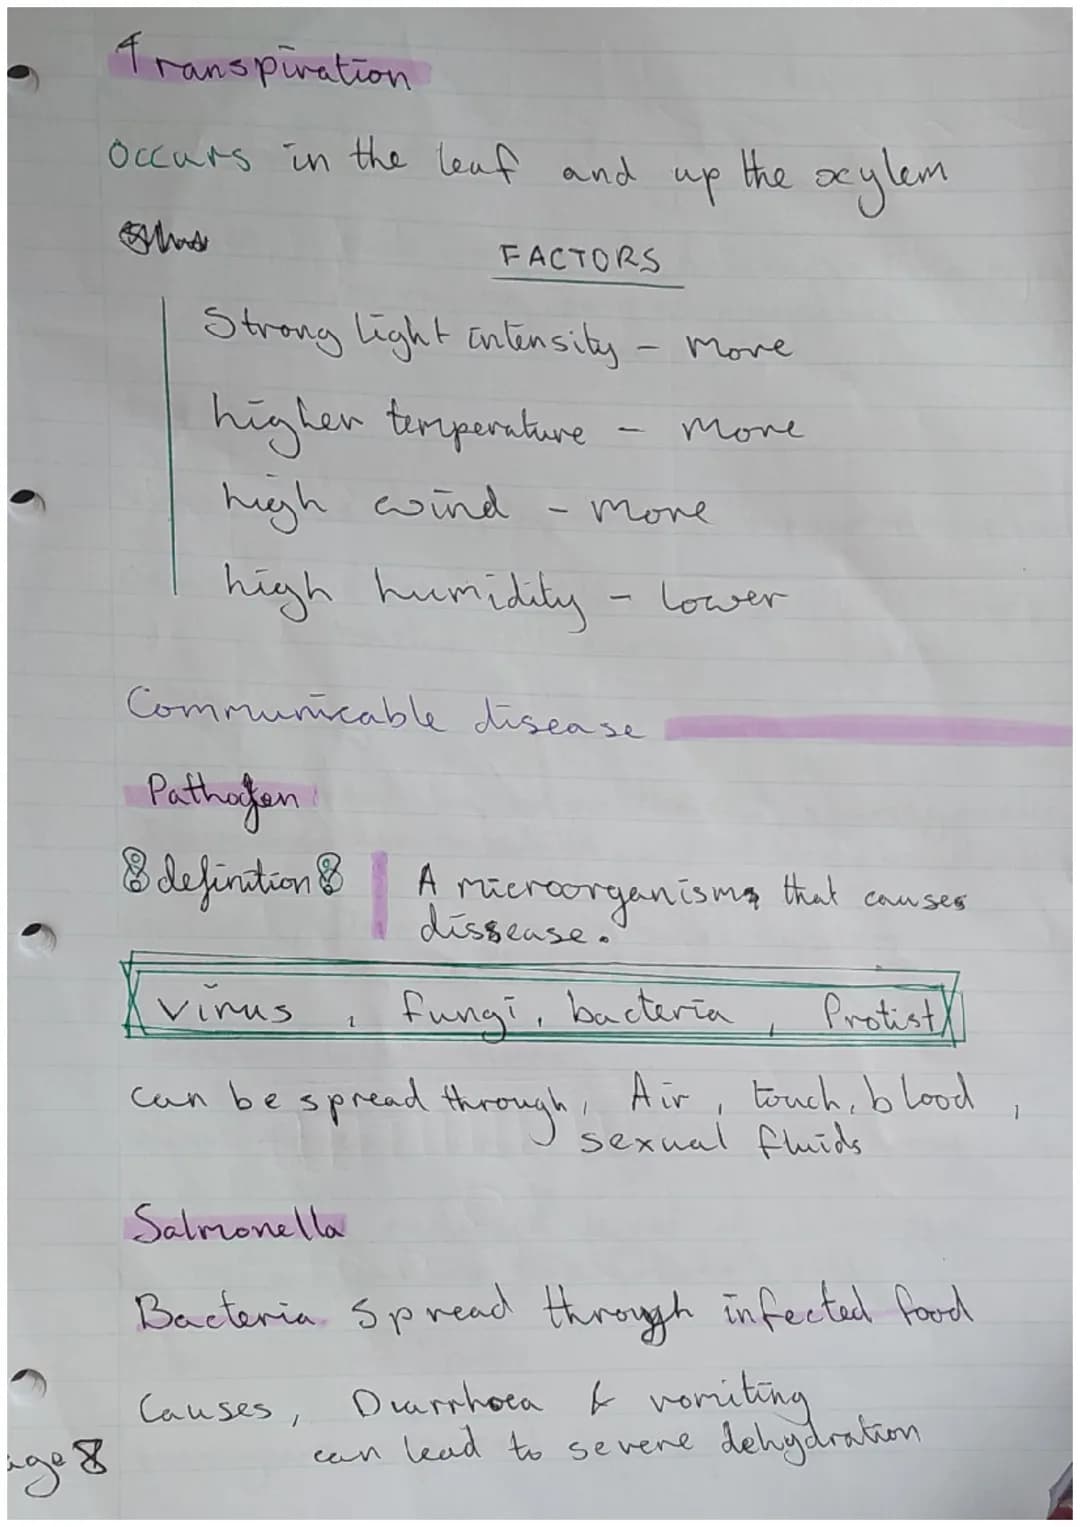 Transpiration
Occurs in the leaf and up the xylem
FACTORS
Strong light intensity - more
higher temperature - more
high wind - more
high humidity - lower
Communicable disease
Pathogen
definition A microorganisms that causes
dissease.
virus, fungi, bacteria, Protist
can be spread through, Air, touch, blood,
sexual fluids
Salmonella
Bacteria spread through infected food
Causes, Diarrhoea & vomiting
can lead to severe dehydration
age 8